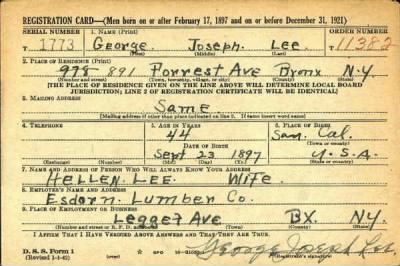 REGISTRATION CARD—(Men born on or after February 17, 1897 and on or before December 31, 1921)
SERIAL NUMBER 1. NAME (Print) ORDER NUMBER
1773 George Joseph Lee 11382
(First) (Middle) (Last)
2. PLACE OF RESIDENCE (Print)
978 891 Forrest Ave Bronx N.Y.
(Number and street) (Town, township, village, or city) (County) (State)
[THE PLACE OF RESIDENCE GIVEN ON THE LINE ABOVE WILL DETERMINE LOCAL BOARD
JURISDICTION; LINE 2 OF REGISTRATION CERTIFICATE WILL BE IDENTICAL]
3. MAILING ADDRESS
Same
[Mailing address if other than place indicated on line 2. If same insert word same]
4. TELEPHONE 5. AGE IN YEARS 6. PLACE OF BIRTH
44 San. Cal.
DATE OF BIRTH (Town or county)
Sept 23 1897 U.S.A
(Exchange) (Number) (Mo.) (Day) (Yr.) (State or country)
7. NAME AND ADDRESS OF PERSON WHO WILL ALWAYS KNOW YOUR ADDRESS
Hellen Lee Wife
8. EMPLOYER'S NAME AND ADDRESS
Esdorn Lumber Co.
9. PLACE OF EMPLOYMENT OR BUSINESS
Legget Ave BX. NY.
(Number and street or R. F. D. number) (Town) (County) (State)
I AFFIRM THAT I HAVE VERIFIED ABOVE ANSWERS AND THAT THEY ARE TRUE.
D. S. S. Form 1 GPO George Joseph Lee
(Revised 1-1-42) (over) (Registrant's signature)